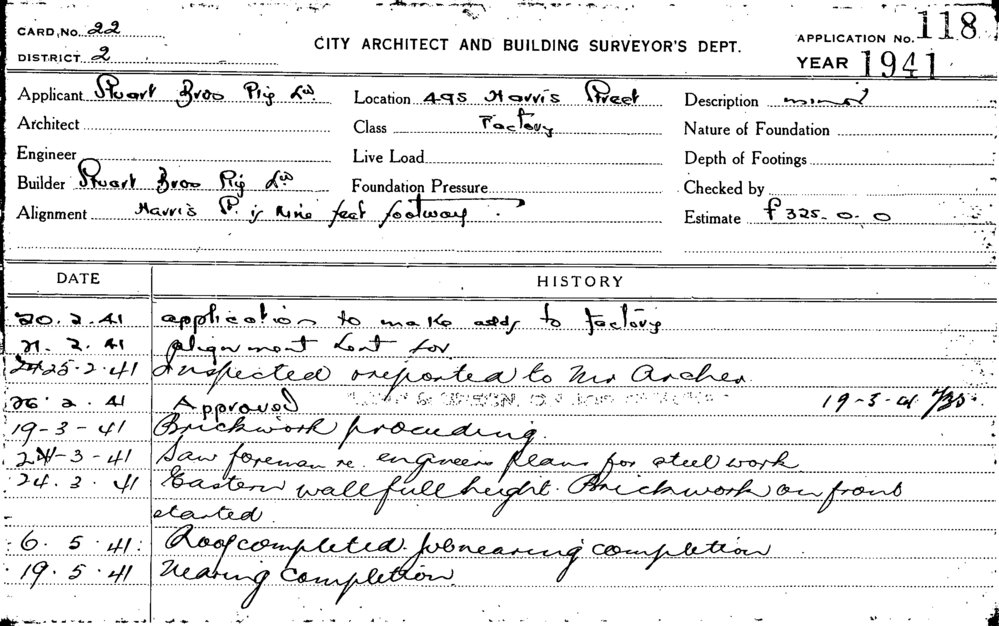 CARD, NO. 22
DISTRICT. 2
CITY ARCHITECT AND BUILDING SURVEYOR'S DEPT.
APPLICATION NO. 118
YEAR 1941
Applicant Stuart Bros Pty Ld. Location 495 Harris Street Description minor
Architect Class Factory Nature of Foundation
Engineer Live Load Depth of Footings
Builder Stuart Bros Pty Ld Foundation Pressure Checked by
Alignment Harris St. is nine feet footway. Estimate £325-0-0
DATE HISTORY
20.2.41 application to make adds to factory
21.2.41 alignment sent for
25.2.41 Inspected & reported to Mr Archer
26.2.41 Approved 19-3-41
19-3-41 Brickwork proceeding.
24-3-41 Saw foreman re. engineers plans for steel work
24.3.41 Eastern wall full height. Brickwork on front
started.
6.5.41: Roof completed. Job nearing completion
19.5.41 Nearing completion.